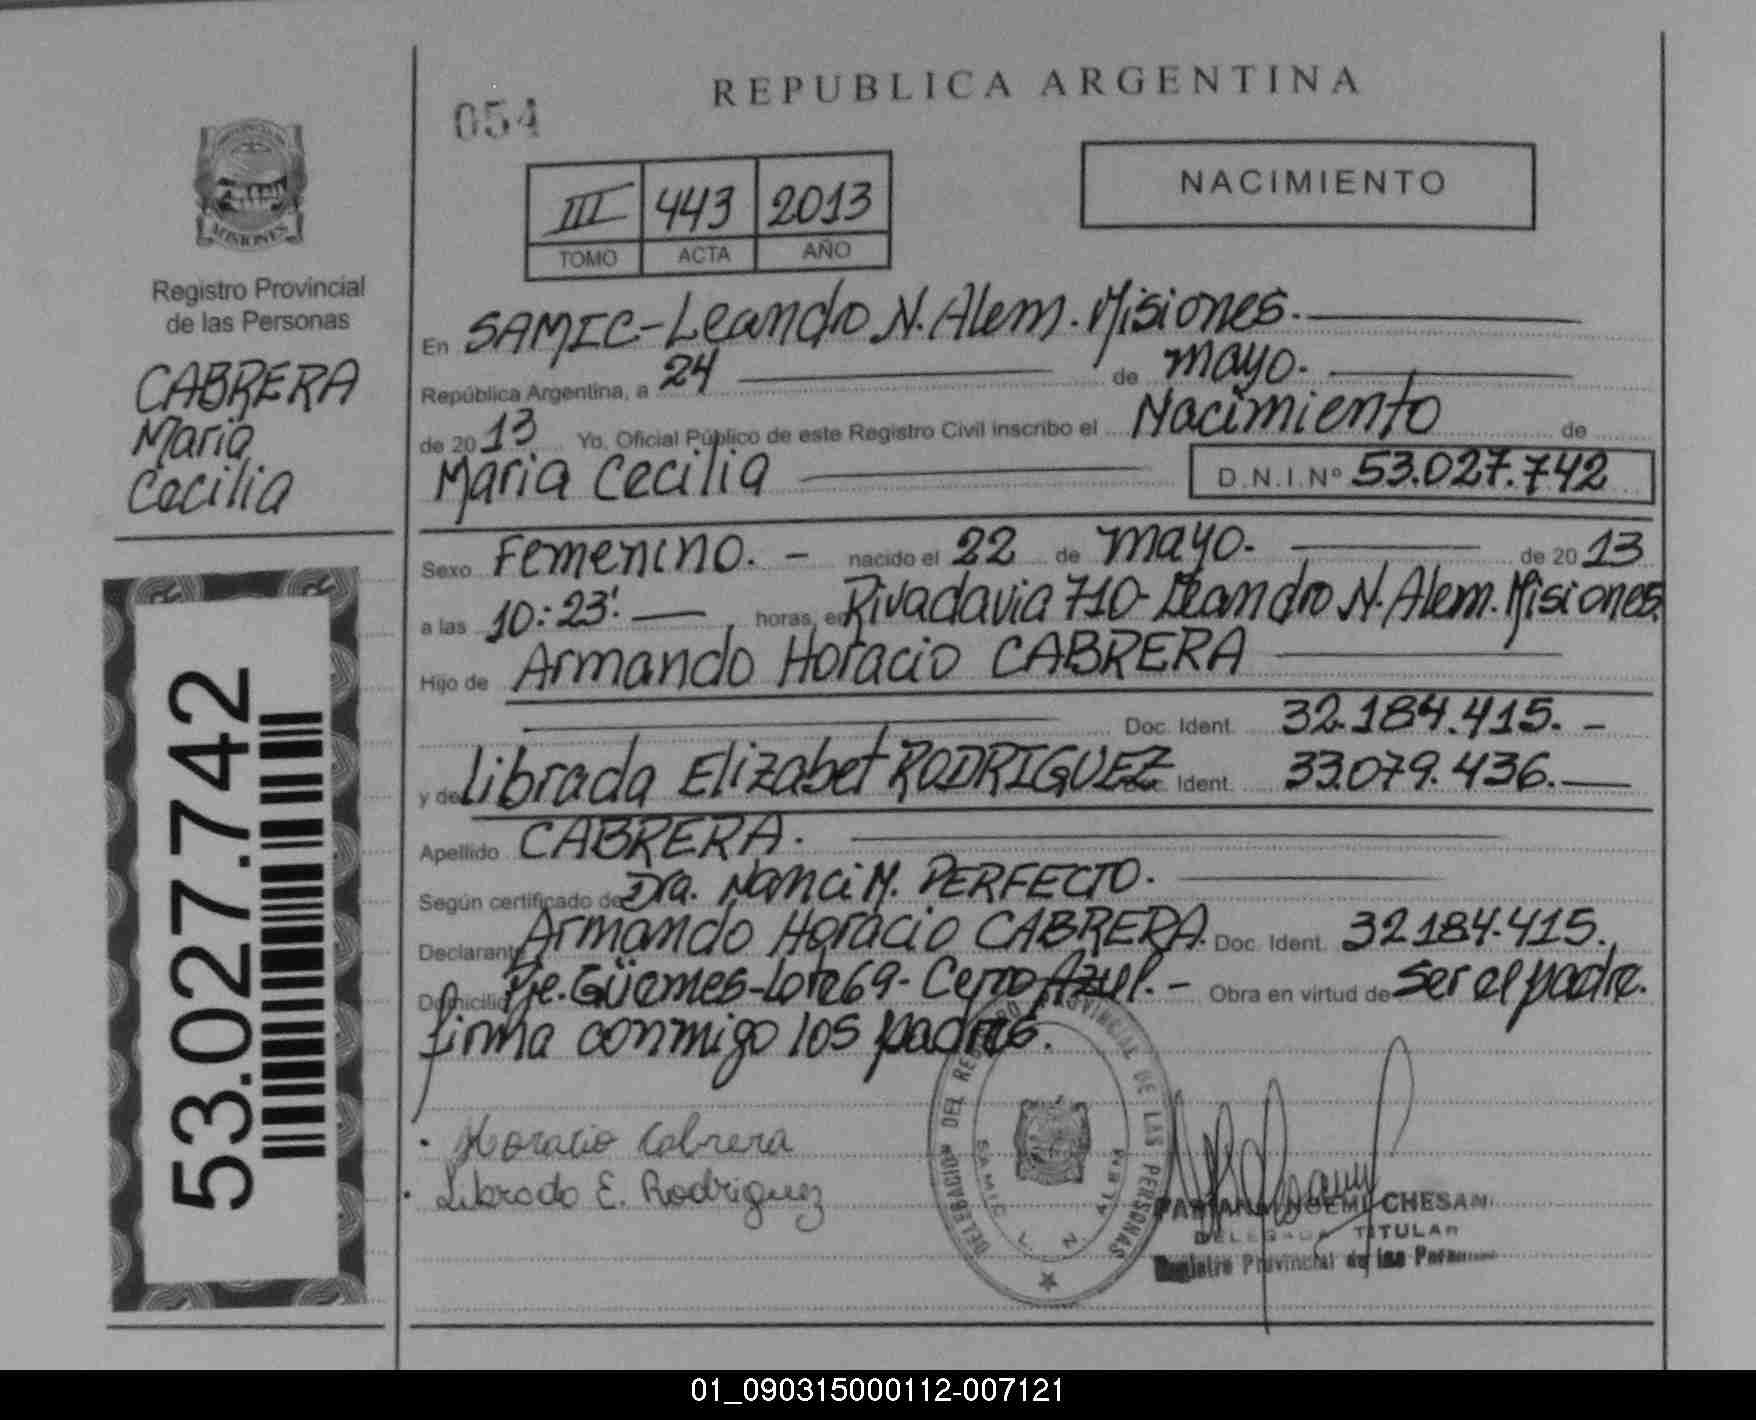 REPUBLICA ARGENTINA
054
NACIMIENTO
III 443 2013
TOMO ACTA AÑO
MISIONES
Registro Provincial
de las Personas
CABRERA
Maria
Cecilia
53.027.742
En SAMIC-Leandro N. Alem. Misiones.
República Argentina, a 24 de mayo.
de 2013 Yo, Oficial Público de este Registro Civil inscribo el Nacimiento de
Maria Cecilia D.N.I.Nº 53.027.742
Sexo Femenino. - nacido el 22 de mayo. de 2013
a las 10:23'. horas, en Rivadavia 710- Leandro N. Alem. Misiones.
Hijo de Armando Horacio CABRERA
Doc. Ident. 32.184.415. -
y de Librada Elizabet RODRIGUEZ Doc. Ident. 33.079.436.
Apellido CABRERA.
Según certificado de Dra. Nanci M. PERFECTO.
Declarante Armando Horacio CABRERA. Doc. Ident. 32.184.415.
Domicilio Pje. Güemes-Lote 69- Cerro Azul. - Obra en virtud de ser el padre.
firma conmigo los padres.
Horacio Cabrera
Librada E. Rodriguez
DELEGACION DEL REGISTRO PROVINCIAL DE LAS PERSONAS
SAMIC L. N. ALEM
NOEMI CHESAN
DELEGADA TITULAR
Registro Provincial de las Personas
01_090315000112-007121